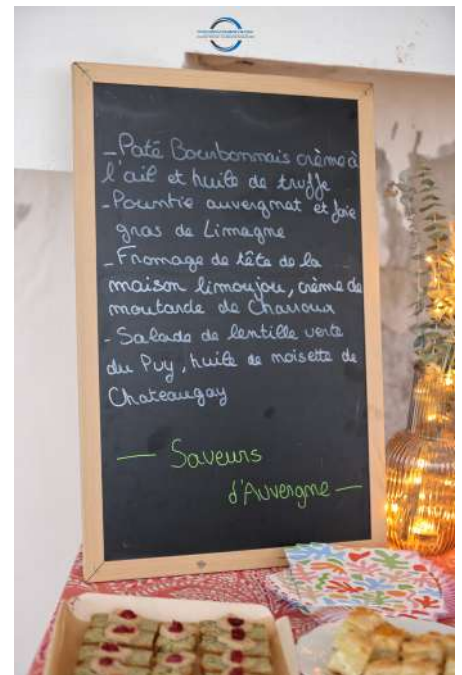 - Paté Bourbonnais crème à
l'ail et huile de truffe
- Pountie auvergnat et foie
gras de Limagne
- Fromage de tête de la
maison limoujou, crème de
moutarde de Charroux
- Salade de lentille verte
du Puy, huile de noisette de
Chateaugay
— Saveurs
d'Auvergne —